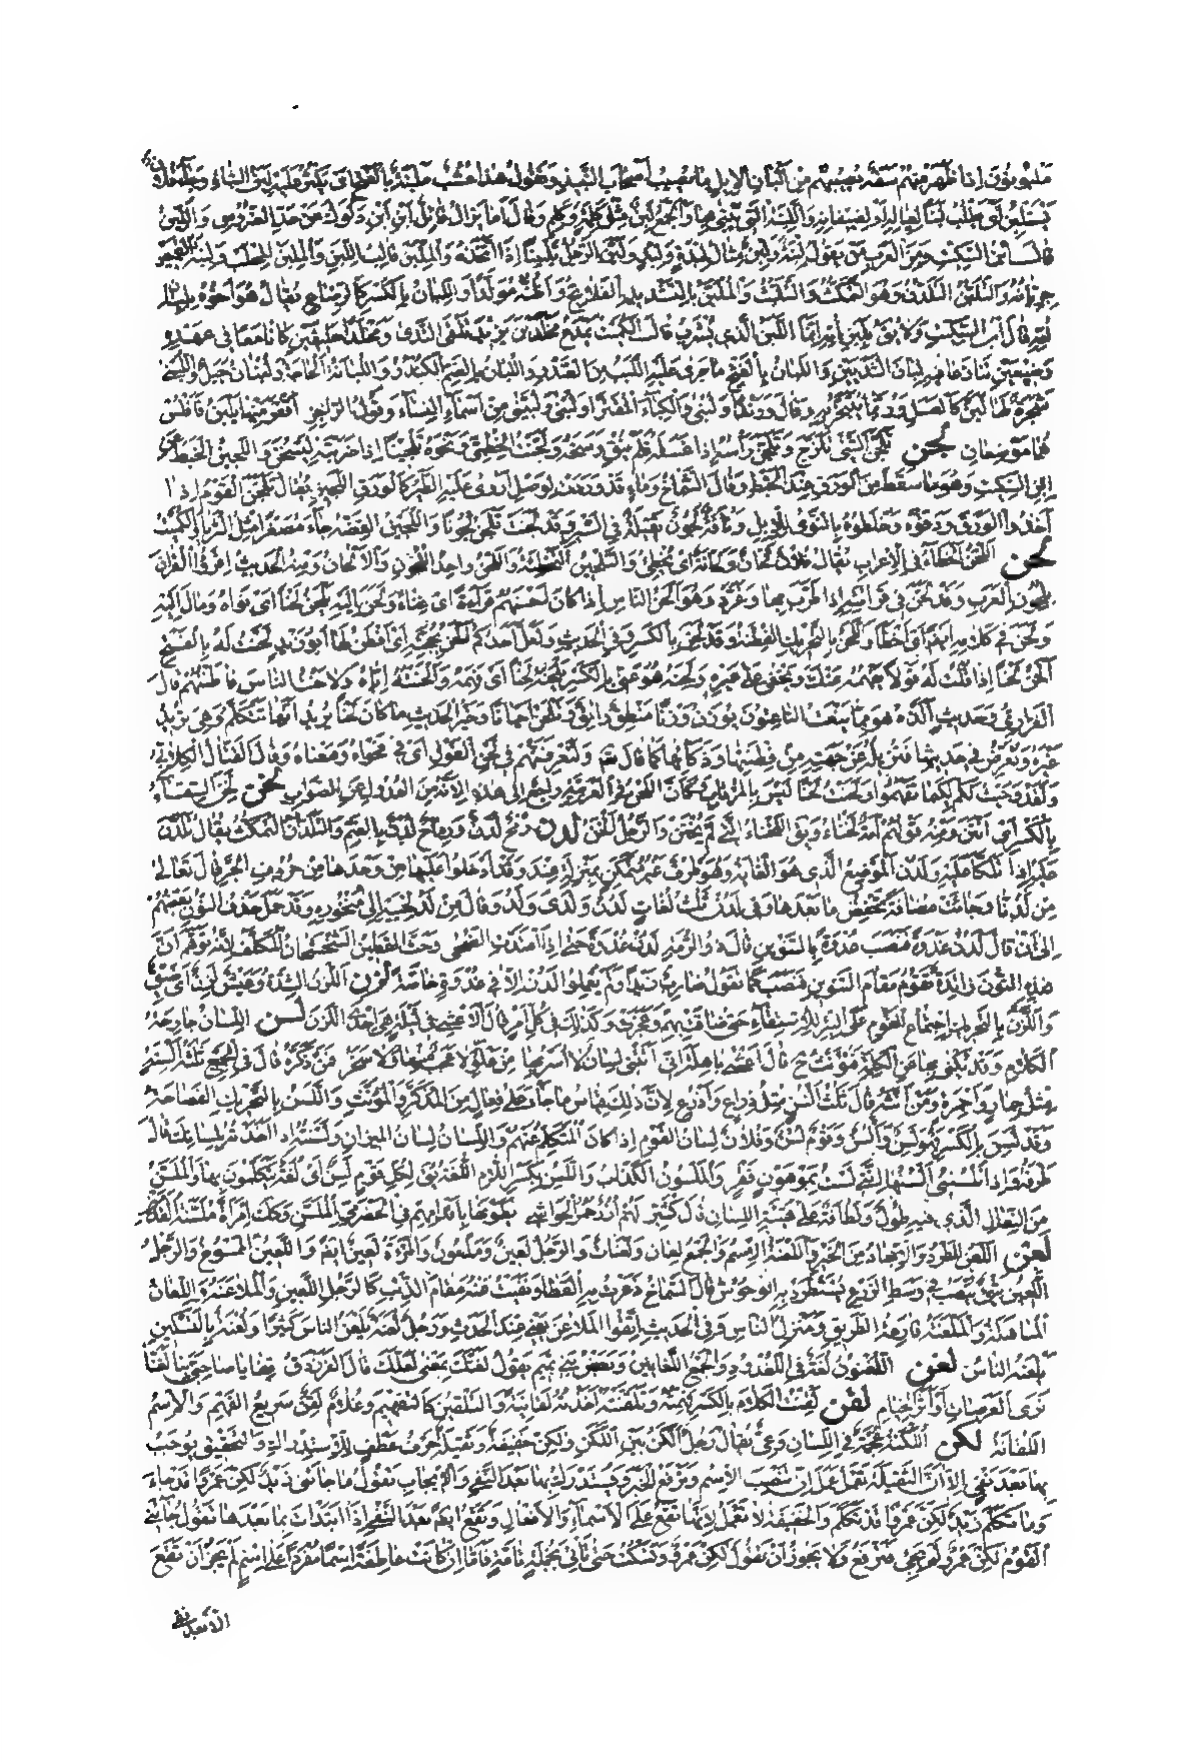 ملبونون اذا ظهر منهم سفه يصيبهم من البان الابل ما يصيب اصحاب النبيذ ويقال هذا عشب ملبنة بالفتح اى يكثر عليه لبن الشاء وجاء فلان
يستلبن اى يطلب لبنا لعياله او لضيفانه واللبنة التى يبنى بها والجمع لبن مثل كلمة وكلم وقال اما يزال قائل ابن ابن دلوك عن حد الضروس واللبن
قال ابن السكيت ومن العرب من يقول لبنة ولبن مثال لبدة ولبد ولبن الرجل تلبينا اذا اتخذه والملبن قالب اللبن والملبن المحلب ولبنة القميص
جربانه والتلبن التلدن وهو التمكث والتلبث والملبن بالتشديد الفلاتج واظنه مولدا واللبان بالكسر كالرضاع يقال هو اخوه بلبان
امه قال ابن السكيت ولا يقال بلبن امه انما اللبن الذى يشرب قال الكميت يمدح مخلد بن يزيد تلقى الندى ومخلدا حليفين كانا معا فى مهده
رضيعين تنازعا فيه لبان الثديين واللبان بالفتح ما جرى عليه اللبب من الصدر واللبان بالضم الكندر واللبانة الحاجة ولبنان جبل واللبنى
شجرة لها لبن كالعسل وربما يتبخر به وقال ورندا ولبنى والكباء المقترا ولبنى ولبينى من اسماء النساء وقول الراجز اقفر منها يلبن فافلس
هما موضعان لجن تلجن الشئ تلزج وتلجن راسه اذا غسله فلم ينق وسخه ولجنت الخطمى ونحوه تلجينا اذا ضربته ليثخن واللجين الخبط عن
ابن السكيت وهو ما سقط من الورق عند الخبط وقال الشماخ وماء قد وردت لوصل اروى عليه الطير كالورق اللجين يقال تلجن القوم اذا
اخذوا الورق ودقوه وخلطوه بالنوى للابل وناقة لجون ثقيلة فى السير وقد لجنت تلجن لجونا واللجين الفضة جاء مصغرا مثل الثريا والكميت
لحن اللحن الخطاء فى الاعراب يقال فلان لحان ولحانة اى يخطئ والتلحين التخطئة واللحن واحد اللحون والالحان ومنه الحديث اقرؤا القران
بلحون العرب وقد لحن فى قراءته اذا طرب بها وغرد وهو الحن الناس اذا كان احسنهم قراءة او غناء ولحن اليه يلحن لحنا اى نواه ومال اليه
ولحن فى كلامه ايضا اى اخطا واللحن بالتحريك الفطنة وقد لحن بالكسر وفى الحديث ولعل احدكم الحن بحجته اى افطن لها ابو زيد لحنت له بالفتح
الحن لحنا اذا قلت له قولا يفهمه عنك ويخفى على غيره ولحنه هو عنى بالكسر يلحنه لحنا اى فهمه والحنته انا اياه ولاحنت الناس فاطنتهم قال
الفزارى وحديث الذه هو مما ينعت الناعتون يوزن وزنا منطق رائق وتلحن احيانا وخير الحديث ما كان لحنا يريد انها تتكلم وهى تريد
غيره وتعرض فى حديثها فتزيله عن جهته من فطنتها وذكائها كما قال تعالى ولتعرفنهم فى لحن القول اى فى فحواه ومعناه وقال القتال الكلابى
ولقد وحيت لكم لكيما تفهموا ولحنت لحنا ليس بالمرتاب وكان اللحن فى العربية راجع الى هذا لانه من العدول عن الصواب لخن لخن السقاء
بالكسر اى انتن ومنه قولهم امة لخناء ويقال اللخناء التى لم تختن والرجل الخن لدن رمح لدن ورماح لدن بالضم والتلدن التمكث يقال تلدن
عليه اذا تلكا عليه ولدن الموضع الذى هو الغاية وهو ظرف غير متمكن بمنزلة عند وقد ادخلوا عليها من وحدها من حروف الجر قال تعالى
من لدنا وجاءت مضافة تخفض ما بعدها وفى لدن ثلث لغات لدن ولدى ولد وقال من لد لحييه الى منحوره وقد حمل حذف النون بعضهم
الى ان قال لدن غدوة فنصب غدوة بالتنوين قال ذو الرمة لدن غدوة حتى اذا امتدت الضحى وحث القطين الشحشحان المكلف لانه توهم ان
هذه النون زائدة تقوم مقام التنوين فنصب كما تقول ضارب زيدا ولم يعملوا لدن الا فى غدوة خاصة لزن اللزن الشدة وعيش لزن اى ضيق
واللزن بالتحريك اجتماع القوم على البئر للاستقاء حتى ضاقت بهم وعجزت وكذلك فى كل امر قال الاعشى فى ليلة هى احدى اللزن لسن اللسان جارحة
الكلام وقد يكنى بها عن الكلمة فيؤنث ح قال اعشى باهلة انى اتتنى لسان لا اسر بها من علو لا عجب منها ولا سخر فمن ذكره قال فى الجمع ثلثة السنة
مثل حمار واحمرة ومن انثه قال ثلث السن مثل ذراع واذرع لان ذلك قياس ما جاء على فعال من المذكر والمؤنث واللسن بالتحريك الفصاحة
وقد لسن بالكسر فهو لسن والسن وقوم لسن وفلان لسان القوم اذا كان المتكلم عنهم واللسان لسان الميزان ولسنته اذا اخذته بلسانك قال
طرفة واذا تلسننى السنها اننى لست بموهون فقر والملسون الكذاب واللسن بكسر اللام اللغة يقال لكل قوم لسن اى لغة يتكلمون بها والملسن
من النعال الذى فيه طول ولطافة على هيئة اللسان قال كثير لهم ازر حمر الحواشى يطونها باقدامهم فى الحضرمى الملسن وكذلك امراة ملسنة القدمين
لعن اللعن الطرد والابعاد من الخير واللعنة الاسم والجمع لعان ولعنات والرجل لعين وملعون والمراة لعين ايضا واللعين الممسوخ والرجل
اللعين شئ ينصب فى وسط الزرع تستطرد به الوحوش قال الشماخ ذعرت به القطا ونفيت عنه مقام الذئب كالرجل اللعين والملاعنة واللعان
المباهلة والملعنة قارعة الطريق ومنزل الناس وفى الحديث اتقوا الملاعن يعنى عند الحدث ورجل لعنة يلعن الناس كثيرا ولعنة بالتسكين
يلعنه الناس لغن اللغنون لغة فى اللغدود والجمع اللغانين وبعض بنى تميم يقول لغنك بمعنى لعلك قال الفرزدق قفا يا صاحبى بنا لغنا
نرى العرصات او اثر الخيام لقن لقنت الكلام بالكسر فهمته وتلقنته اخذته لقانية والتلقين كالتفهيم وغلام لقن سريع الفهم والاسم
اللقانة لكن اللكنة عجمة فى اللسان وعى يقال رجل الكن بين اللكن ولكن خفيفة وثقيلة حرف عطف للاستدراك والتحقيق يوجب
بها بعد نفى الا ان الثقيلة تعمل عمل ان تنصب الاسم وترفع الخبر ويستدرك بها بعد النفى والايجاب تقول ما جاءنى زيد لكن عمرا قد جاء
وما تكلم زيد لكن عمرا قد تكلم والخفيفة لا تعمل لانها تقع على الاسماء والافعال وتقع ايضا بعد النفى اذا ابتدات بما بعدها تقول جاءنى
القوم لكن عمرو لم يجئ فترفع ولا يجوز ان تقول لكن عمرو وتسكت حتى تاتى بجملة تامة فاما ان كانت عاطفة اسما مفردا على اسم لم يجز ان تقع
الا بعد نفى